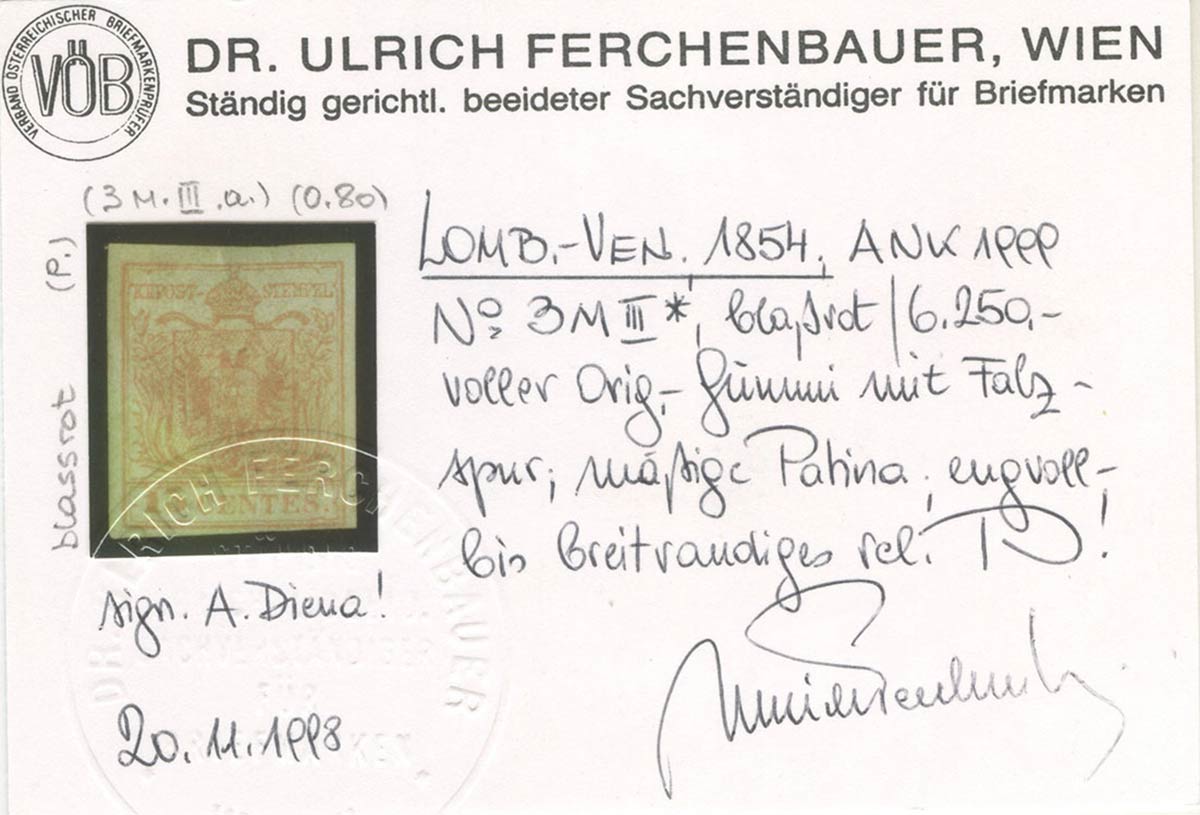 VERBAND ÖSTERREICHISCHER BRIEFMARKENPRÜFER
VÖB
DR. ULRICH FERCHENBAUER, WIEN
Ständig gerichtl. beeideter Sachverständiger für Briefmarken
(3 M. III .a.) (0.80)
(P.)
blassrot
KKPOST-STEMPEL
CENTES.
LOMB.-VEN. 1854, ANK 1999
No. 3 M III *, blaßrot / 6.250,-
voller Orig.-Gummi mit Falz-
spur; mäßige Patina; engvoll-
bis breitrandiges rel.
sign. A. Diena!
20.11.1998
DR. ULRICH FERCHENBAUER